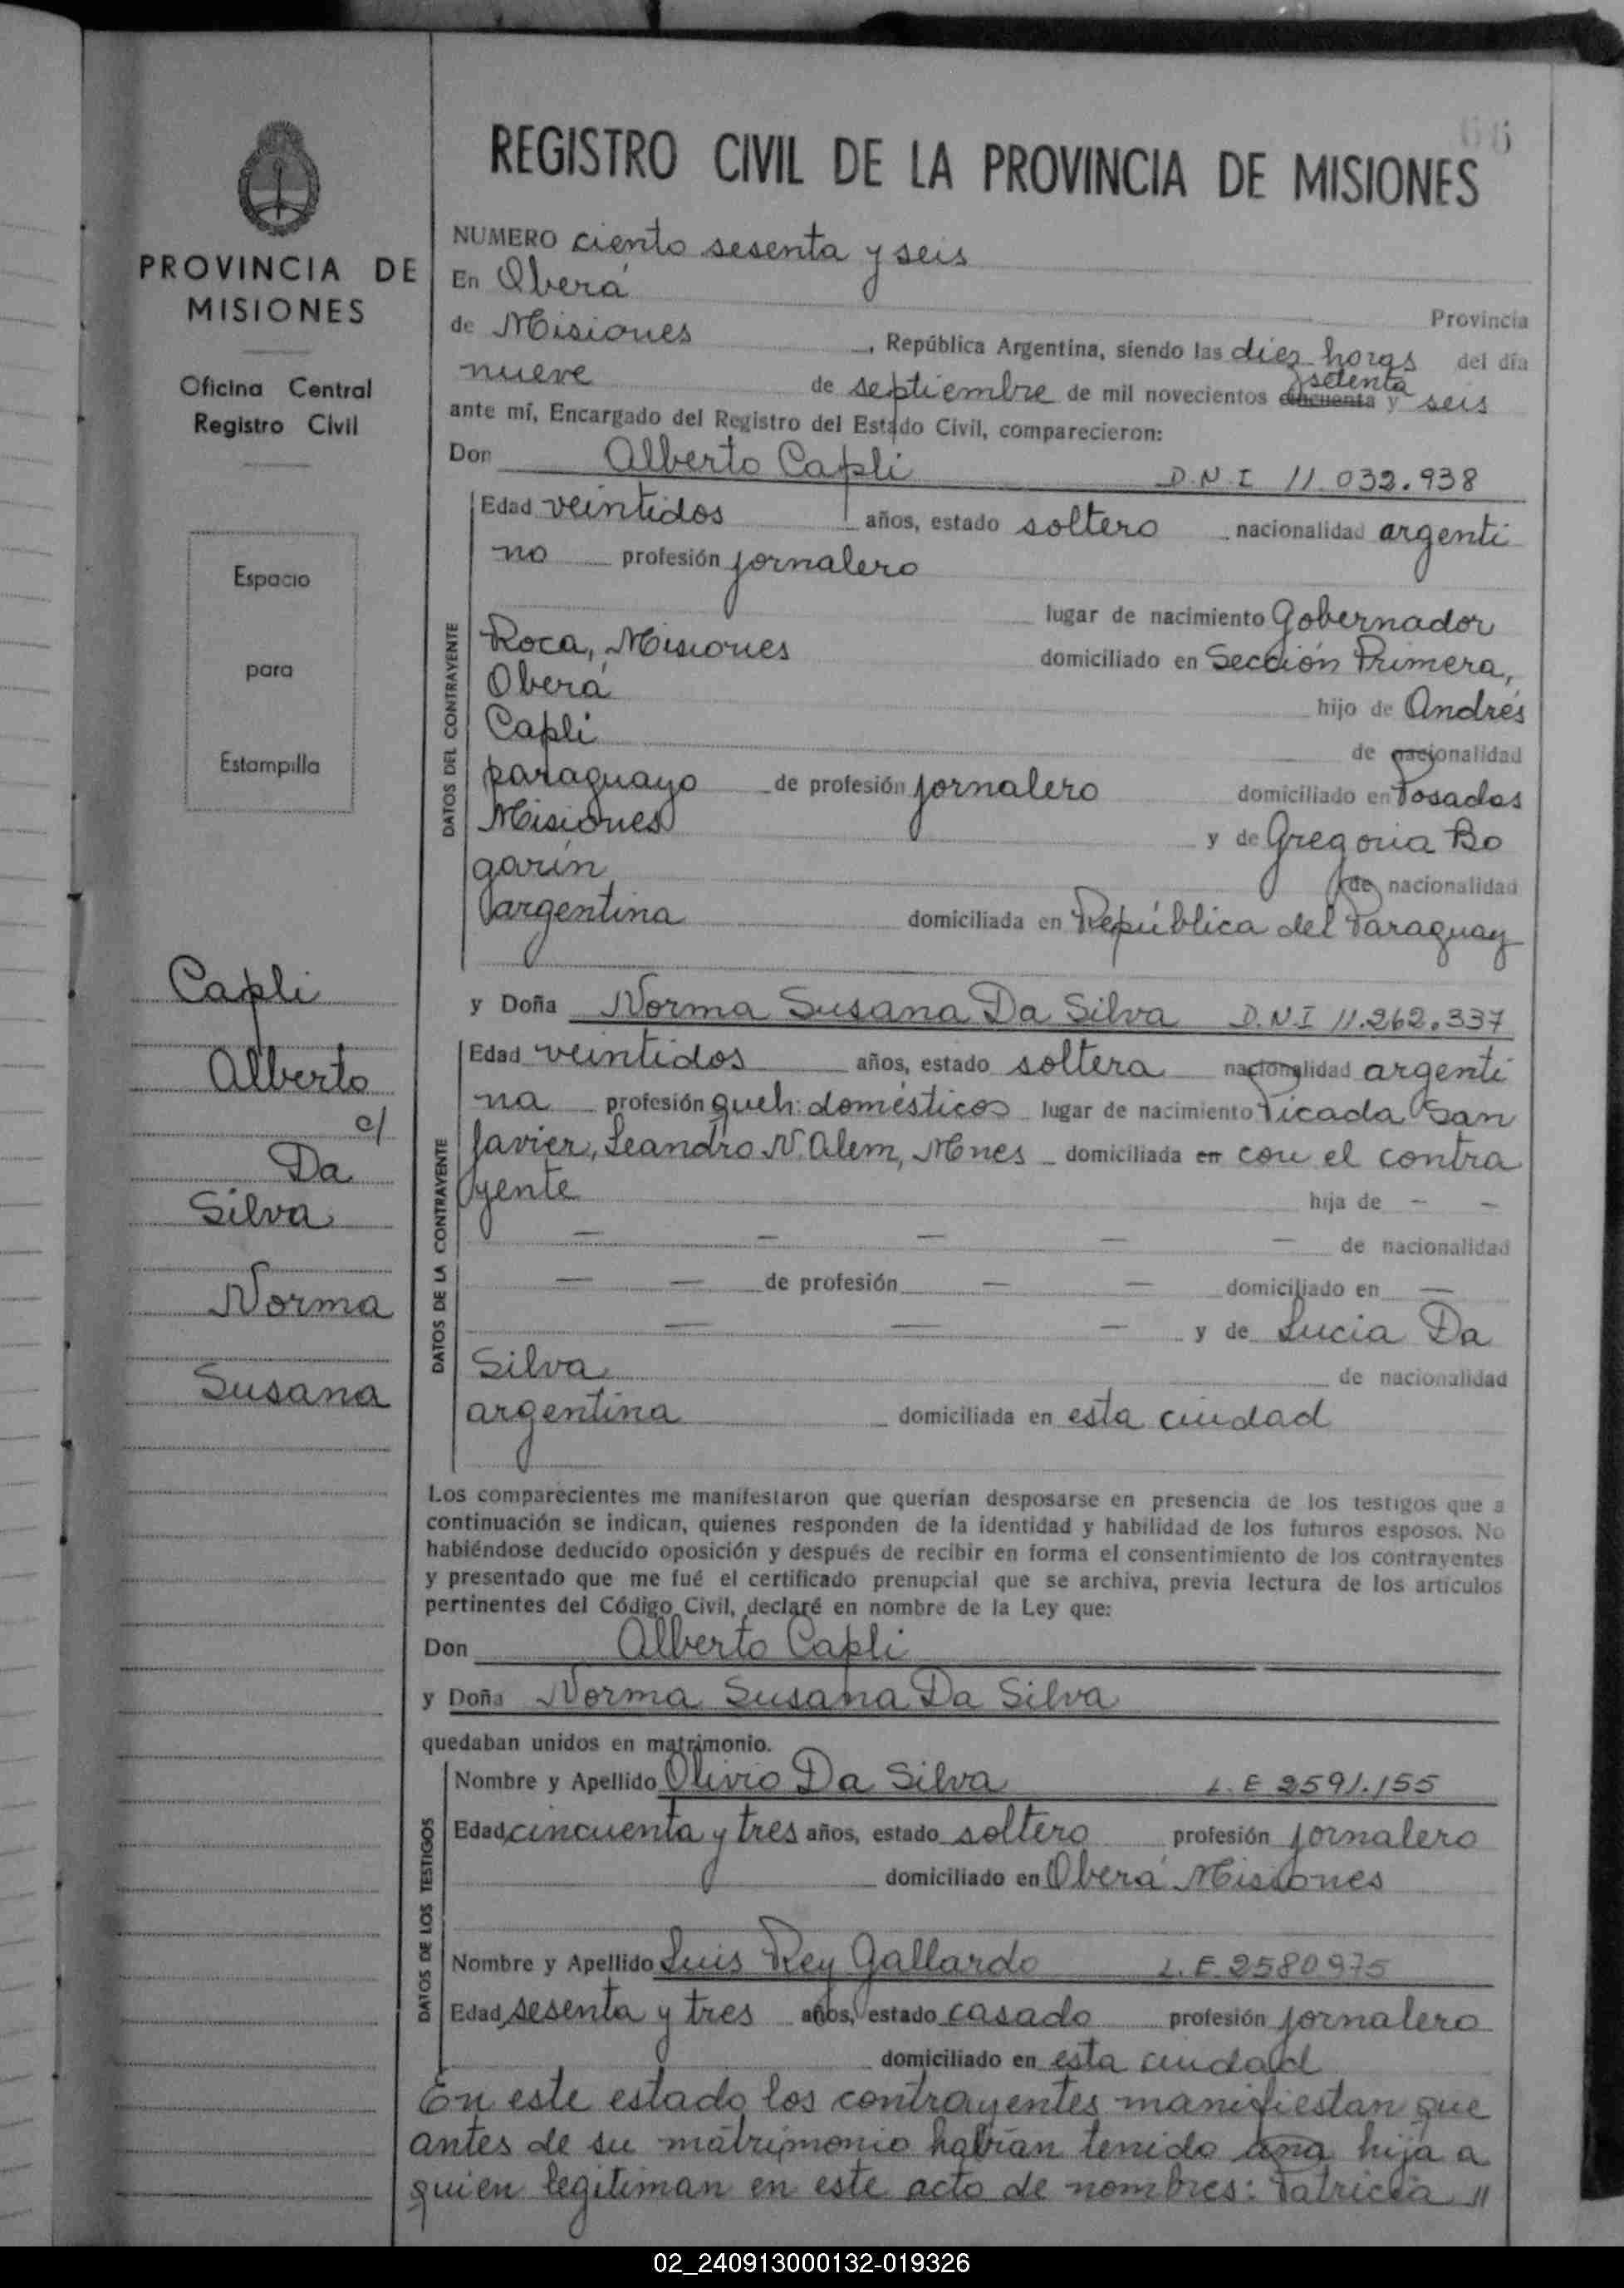 66
REGISTRO CIVIL DE LA PROVINCIA DE MISIONES
PROVINCIA DE
MISIONES
Oficina Central
Registro Civil
Espacio
para
Estampilla
Capli
Alberto
c/
Da
Silva
Norma
Susana
NUMERO ciento sesenta y seis
En Oberá
Provincia
de Misiones, República Argentina, siendo las diez horas del día
nueve de septiembre de mil novecientos cincuenta y setenta y seis
ante mí, Encargado del Registro del Estado Civil, comparecieron:
Don Alberto Capli D.N.I 11.032.938
DATOS DEL CONTRAYENTE
Edad veintidos años, estado soltero nacionalidad argenti
no profesión jornalero
lugar de nacimiento Gobernador
Roca, Misiones domiciliado en Sección Primera,
Oberá hijo de Andrés
Capli de nacionalidad
paraguayo de profesión jornalero domiciliado en Posadas
Misiones y de Gregoria Bo
garín de nacionalidad
argentina domiciliada en República del Paraguay
y Doña Norma Susana Da Silva D.N.I 11.262.337
DATOS DE LA CONTRAYENTE
Edad veintidos años, estado soltera nacionalidad argenti
na profesión queh: domésticos lugar de nacimiento Picada San
Javier, Leandro N. Alem, Mnes domiciliada en con el contra
yente hija de - -
— — — — — de nacionalidad
— — de profesión — — domiciliado en —
— — — y de Lucia Da
Silva de nacionalidad
argentina domiciliada en esta ciudad
Los comparecientes me manifestaron que querían desposarse en presencia de los testigos que a
continuación se indican, quienes responden de la identidad y habilidad de los futuros esposos. No
habiéndose deducido oposición y después de recibir en forma el consentimiento de los contrayentes
y presentado que me fué el certificado prenupcial que se archiva, previa lectura de los artículos
pertinentes del Código Civil, declaré en nombre de la Ley que:
Don Alberto Capli
y Doña Norma Susana Da Silva
quedaban unidos en matrimonio.
DATOS DE LOS TESTIGOS
Nombre y Apellido Olivio Da Silva L.E 2591.155
Edad cincuenta y tres años, estado soltero profesión jornalero
domiciliado en Oberá Misiones
Nombre y Apellido Luis Rey Gallardo L.E. 2580975
Edad sesenta y tres años, estado casado profesión jornalero
domiciliado en esta ciudad
En este estado los contrayentes manifiestan que
antes de su matrimonio habían tenido una hija a
quien legitiman en este acto de nombres: Patricia //
02_240913000132-019326